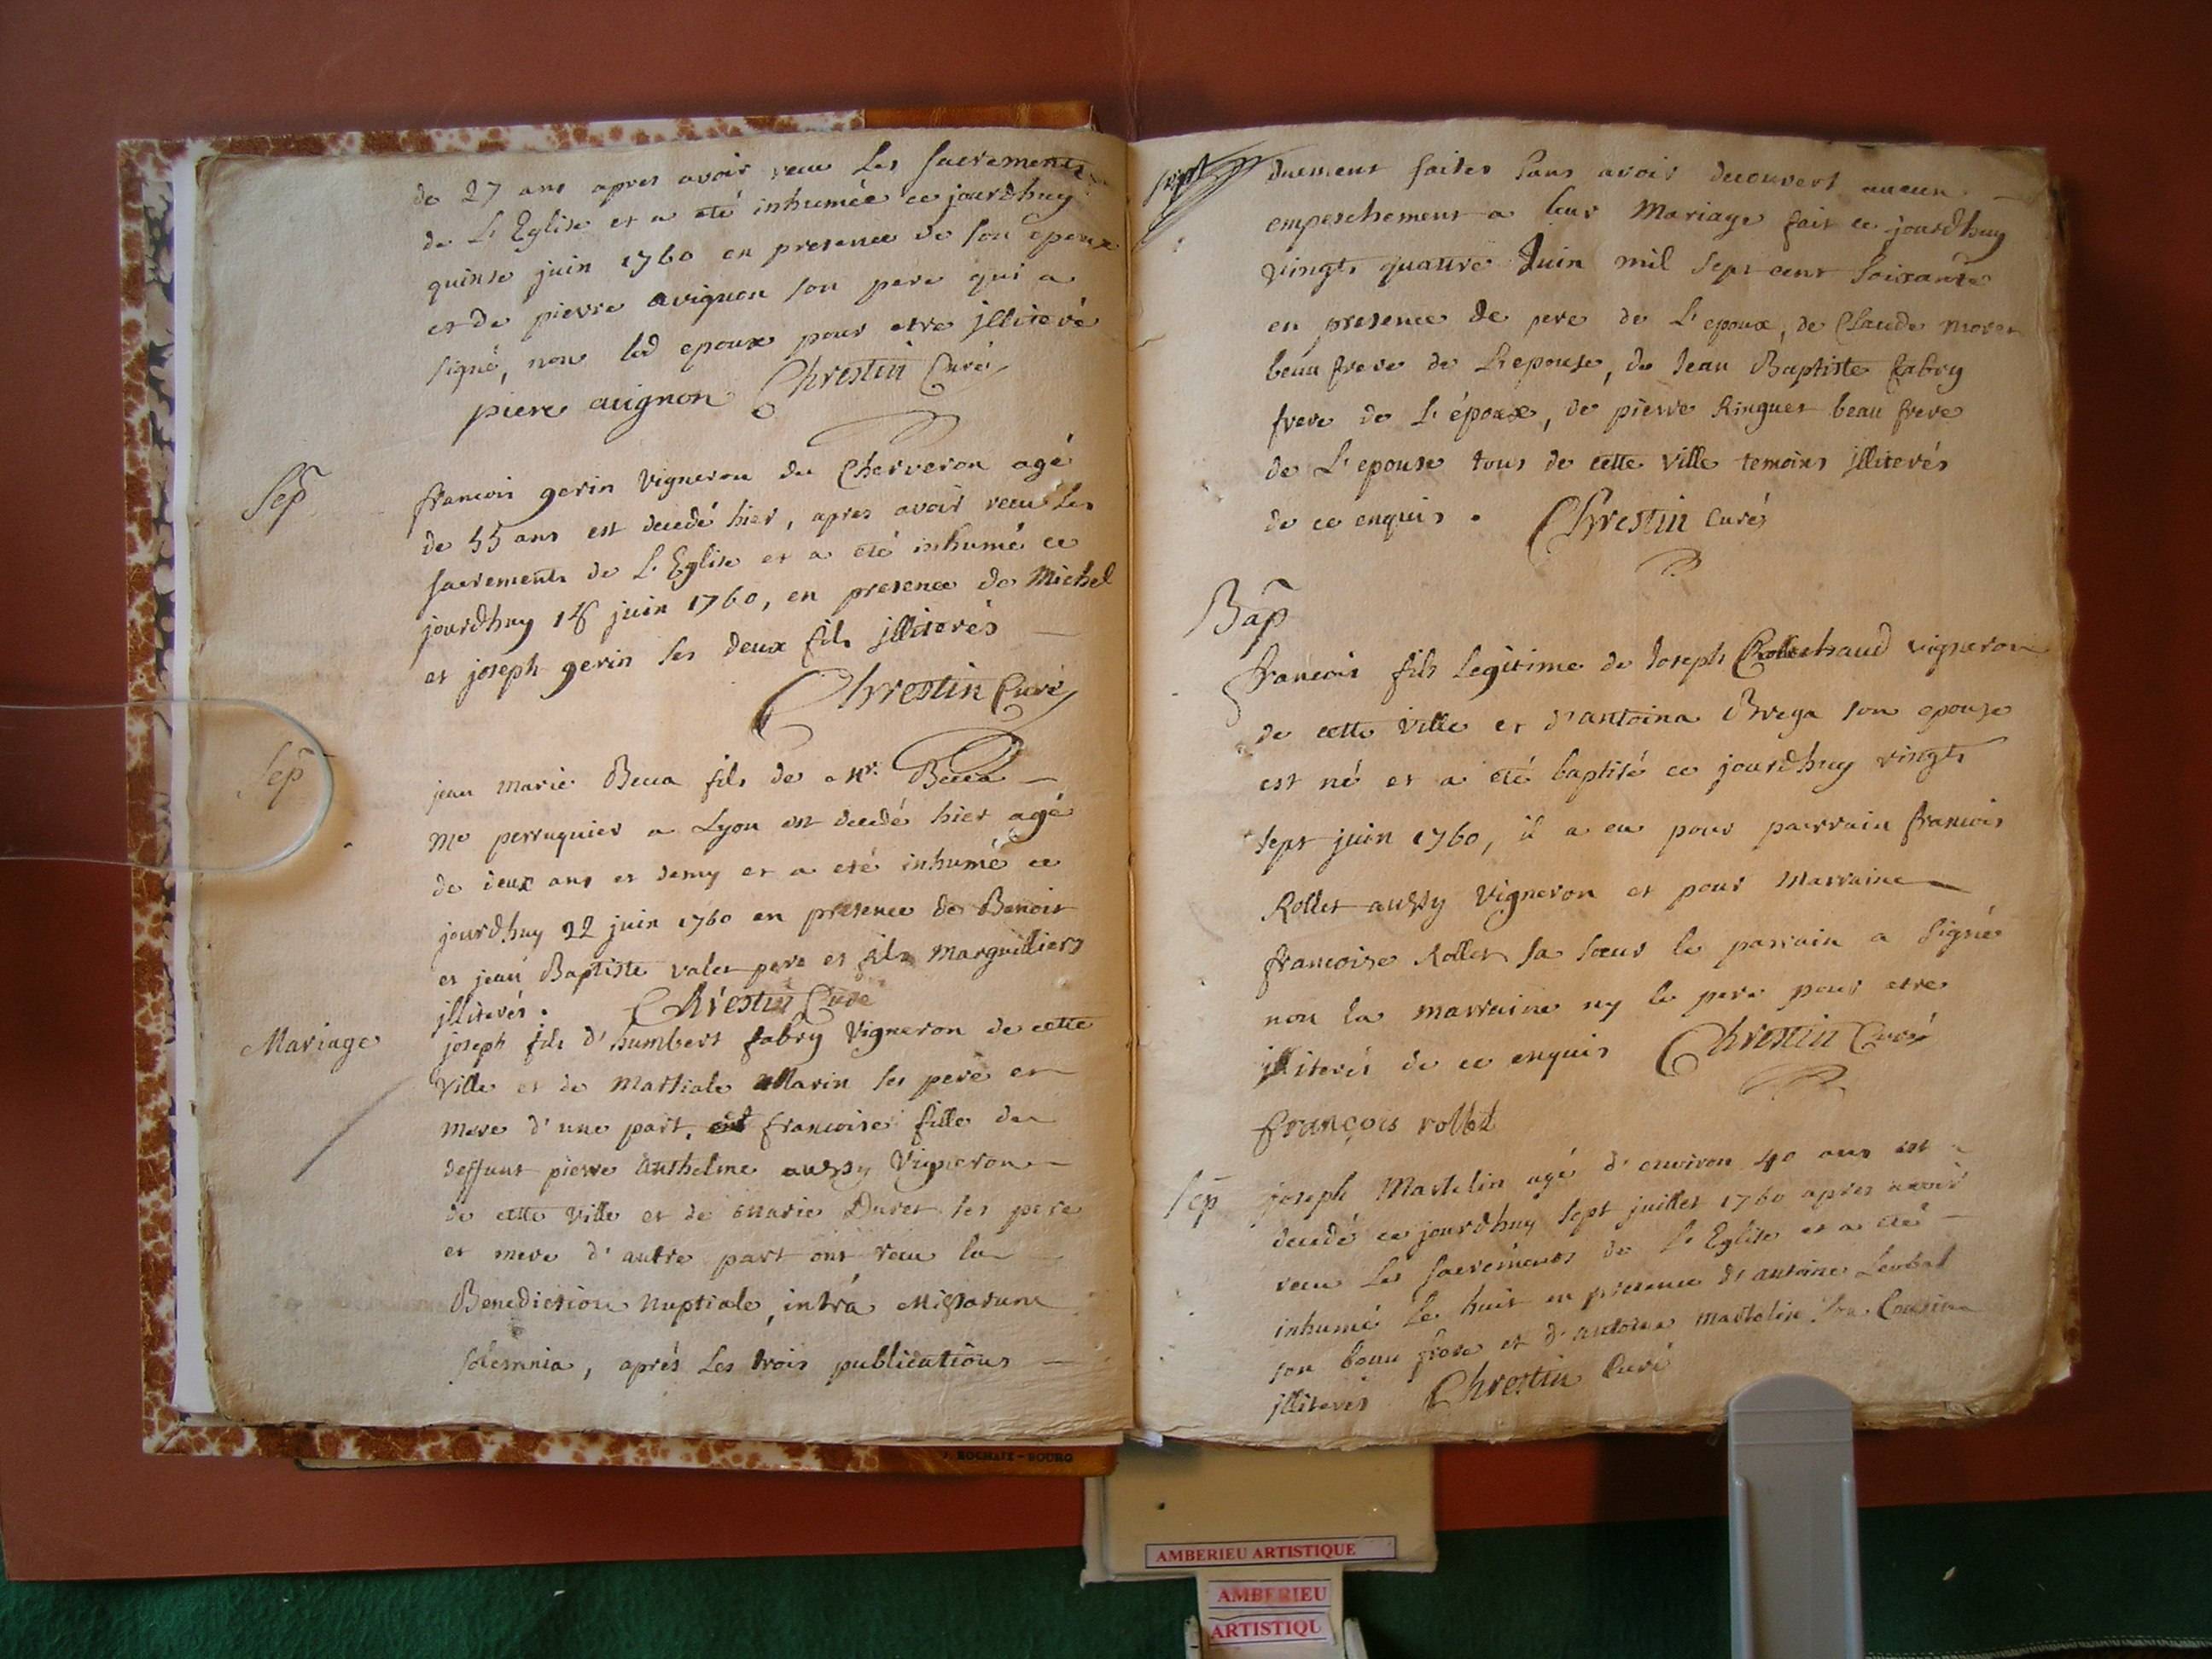 de 27 ans apres avoir recu Les sacrements
de L'Eglise et a eté inhumée ce jourdhuy
quinse juin 1760 en presence de son epoux
et de pierre avignon son pere qui a
signé, non led epoux pour etre jlliteré
piere auignon Chrestin Curé
Sep
francois gerin vigneron du Cherveron agé
de 55 ans est decedé hier, apres avoir recu les
sacrements de L'Eglise et a eté inhumé ce
jourdhuy 18 juin 1760, en presence de Michel
et joseph gerin ses deux fils jlliterés
Chrestin Curé
Sep
jean marie Becca fils de Mr. Becca
me perruquier a Lyon est decedé hier agé
de deux ans et demy et a eté inhumé ce
jourdhuy 22 juin 1760 en presence de Benoit
et jean Baptiste valet pere et fils Marguilliers
jlliterés. Chrestin Curé
Mariage
joseph fils d'humbert fabry Vigneron de cette
Ville et de Martiale Marin ses pere et
mere d'une part, et francoise fille de
deffunt pierre anthelme aussy Vigneron
de cette Ville et de Marie Duret ses pere
et mere d'autre part ont recu la
Benediction Nuptiale, intrá Missarum
solemnia, aprés Les trois publications
duement faites sans avoir decouvert aucun
empeschement a leur Mariage fait ce jourdhuy
vingts quatre Juin mil sept cent soixante
en presence de pere de L'epoux, de Claude morer
beau frere de L'epouse, de Jean Baptiste fabry
frere de L'époux, de pierre Ringuet beau frere
de L'epouse tous de cette Ville temoins jlliterés
de ce enquis. Chrestin Curé
Bap
francois fils Legitime de Joseph vigneron
de cette Ville et d'antoina Brega son epouse
est né et a eté baptisé ce jourdhuy vingts
sept juin 1760, il a eu pour parrain francois
Rollet aussy Vigneron et pour Marraine
francoise Rollet sa sœur le parrain a signé
non la marraine ny le pere pour etre
jlliterés de ce enquis Chrestin Curé
françois rollet
Sep
joseph Martelin agé d'environ 40 ans est
decedé ce jourdhuy sept juillet 1760 apres avoir
recu Les sacrements de L'Eglise et a eté
inhumé Le huit en presence d'antoine
son beau frere et d'antoine martelin son Cousin
jlliterés Chrestin Curé
J. ROCHAIX - BOURG
AMBERIEU ARTISTIQUE
AMBERIEU
ARTISTIQU